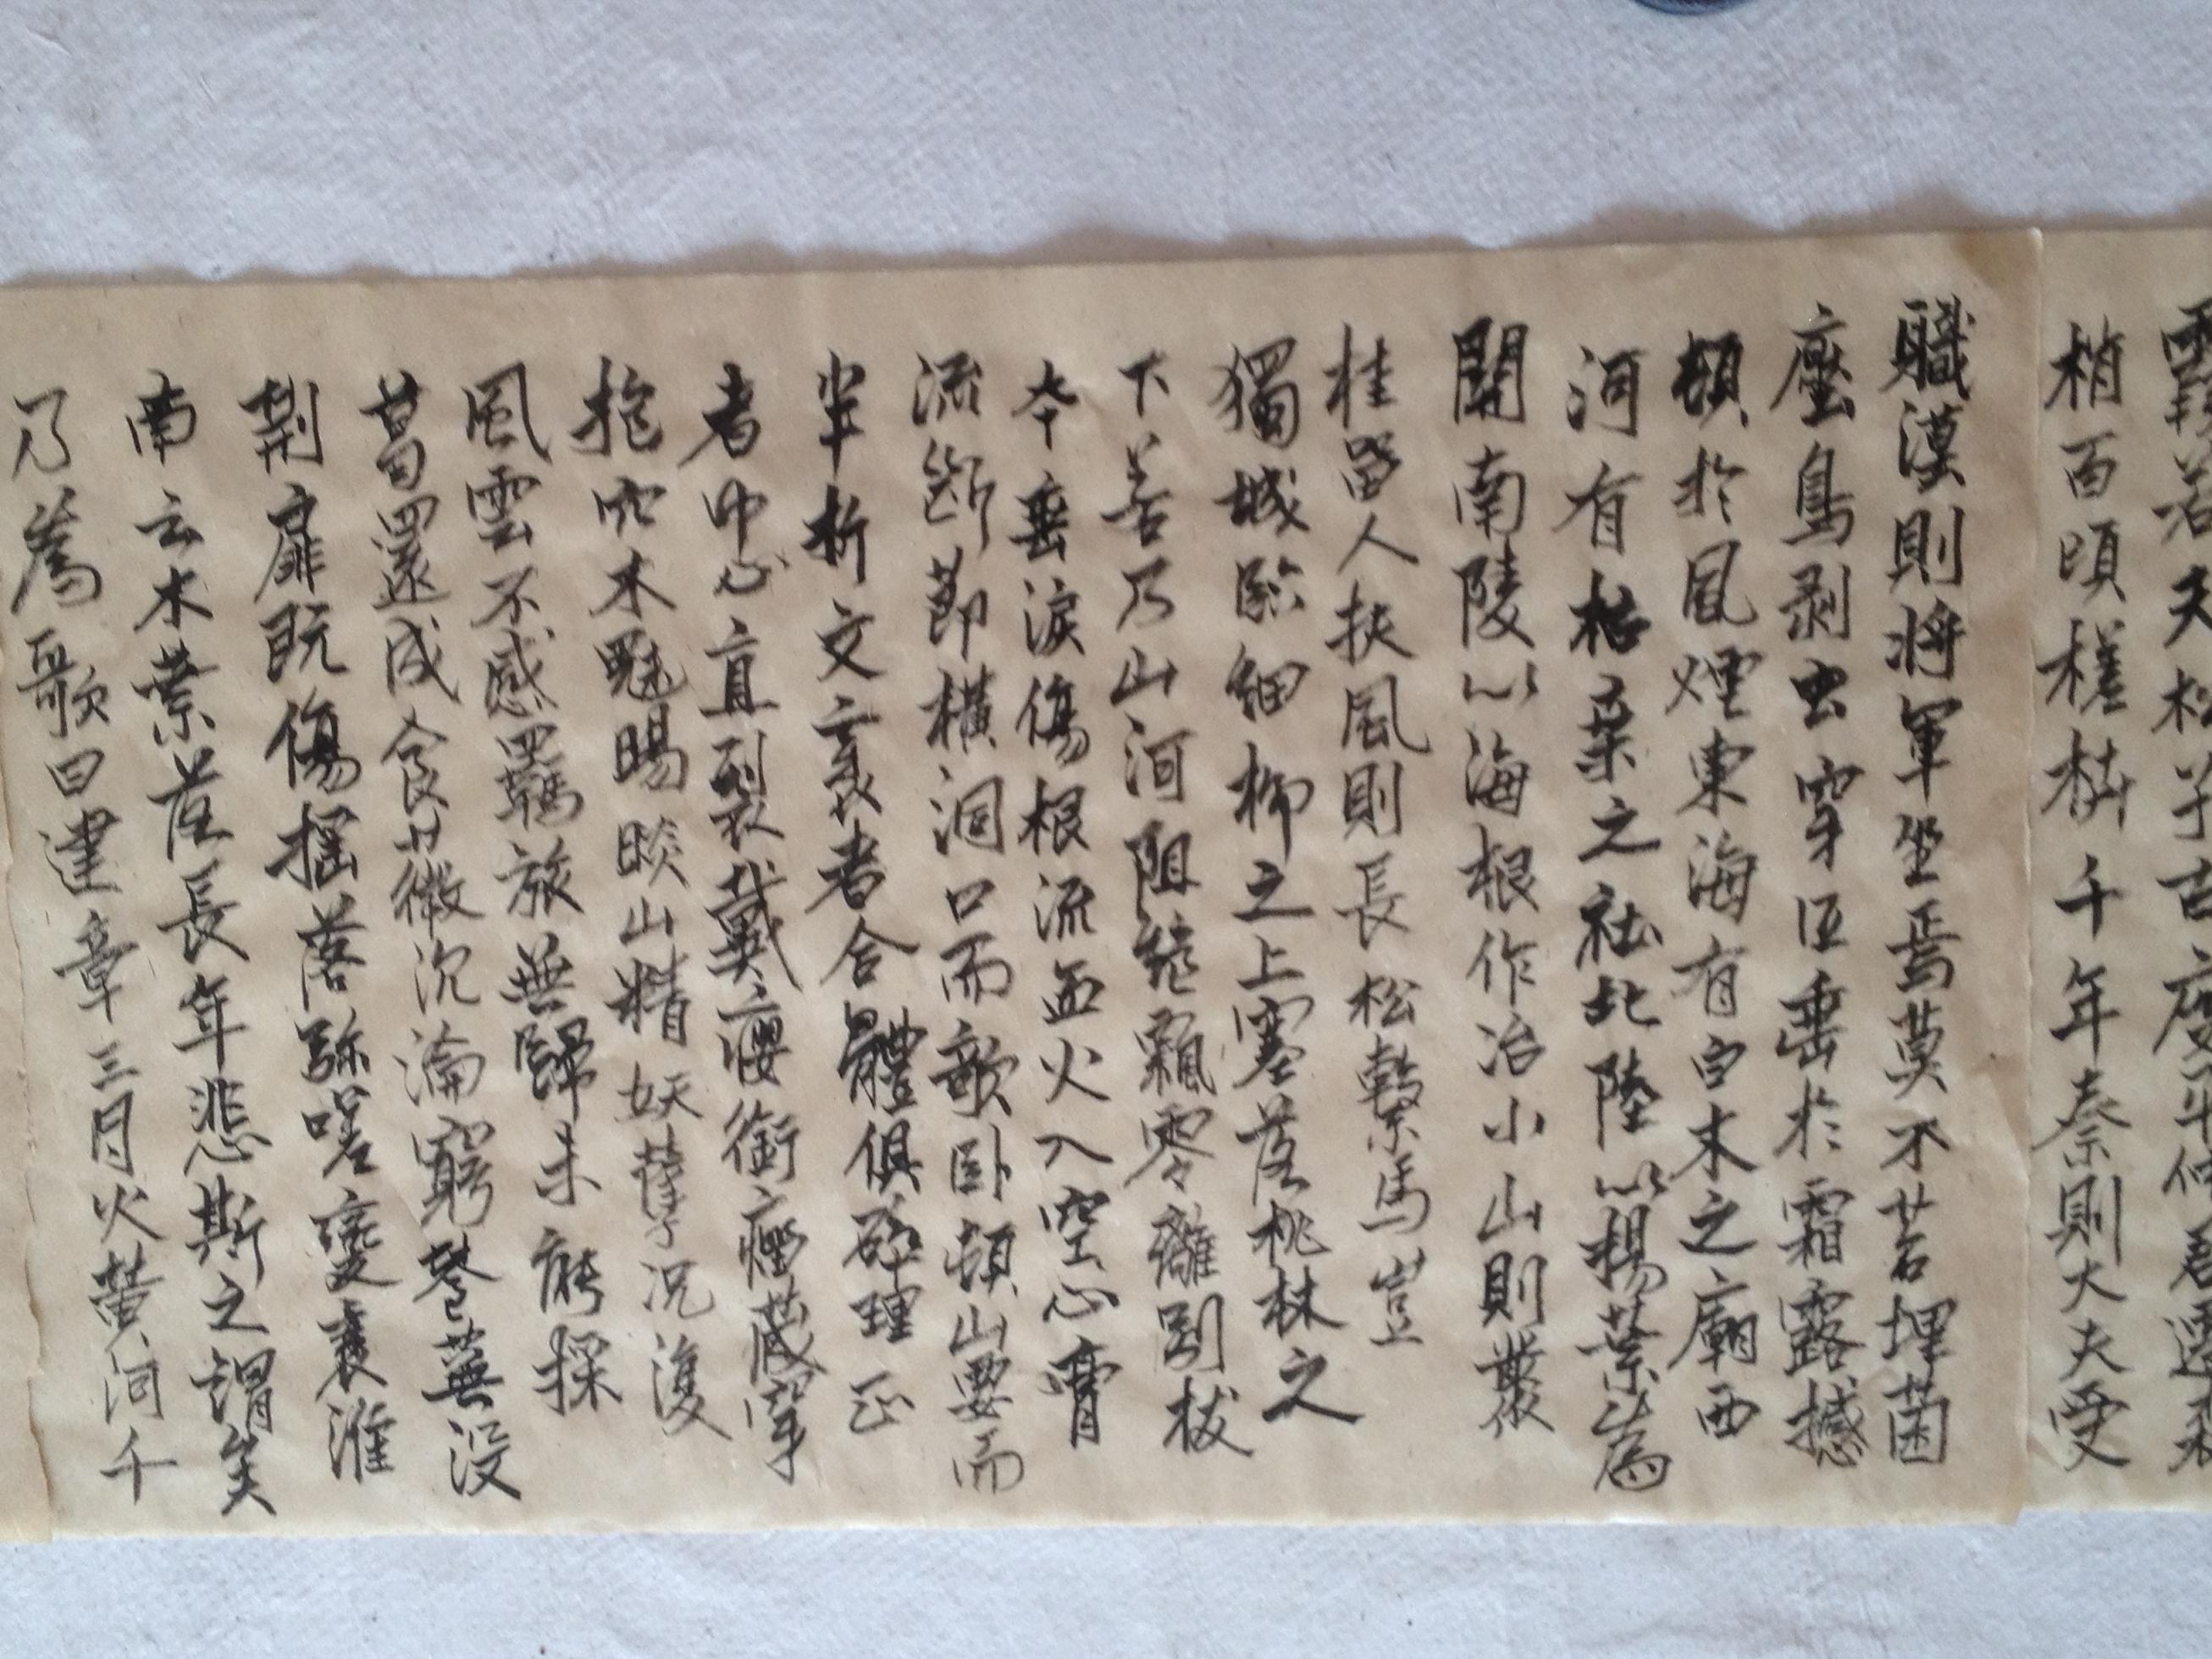 若夫松子古度平仲君遷森
梢百頃槎枿千年秦則大夫受
職漢則將軍坐焉莫不苔埋菌
壓鳥剥虫穿低垂於霜露撼
頓於風煙東海有白木之廟西
河有枯桑之社北陸以楊葉為
開南陵以海根作冶小山則叢
桂留人扶風則長松繫馬豈
獨城臨細柳之上塞落桃林之
下若乃山河阻絶飄零離別拔
本垂淚傷根流血火入空心膏
流斷節橫洞口而敧臥頓山要而
半折文衺者合體俱碎理正
者中心直裂戴癭銜瘤藏穿
抱穴木魅睗睒山精妖孽況復
風雲不感羈旅無歸未能採
葛還成食薇沉淪窮巷蕪没
荆扉既傷搖落弥嗟變衰淮
南云木葉落長年悲斯之謂矣
乃為歌曰建章三月火黄河千